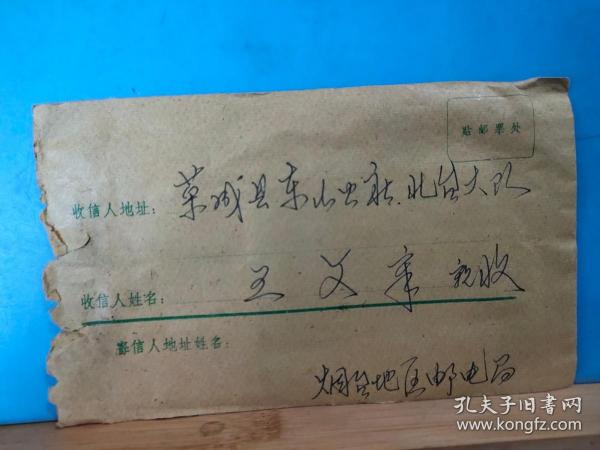 贴邮票处
收信人地址：荣成县东山公社.北台大队
收信人姓名：王文章 亲收
寄信人地址姓名：
烟台地区邮电局
孔夫子旧书网
www.kongfz.com